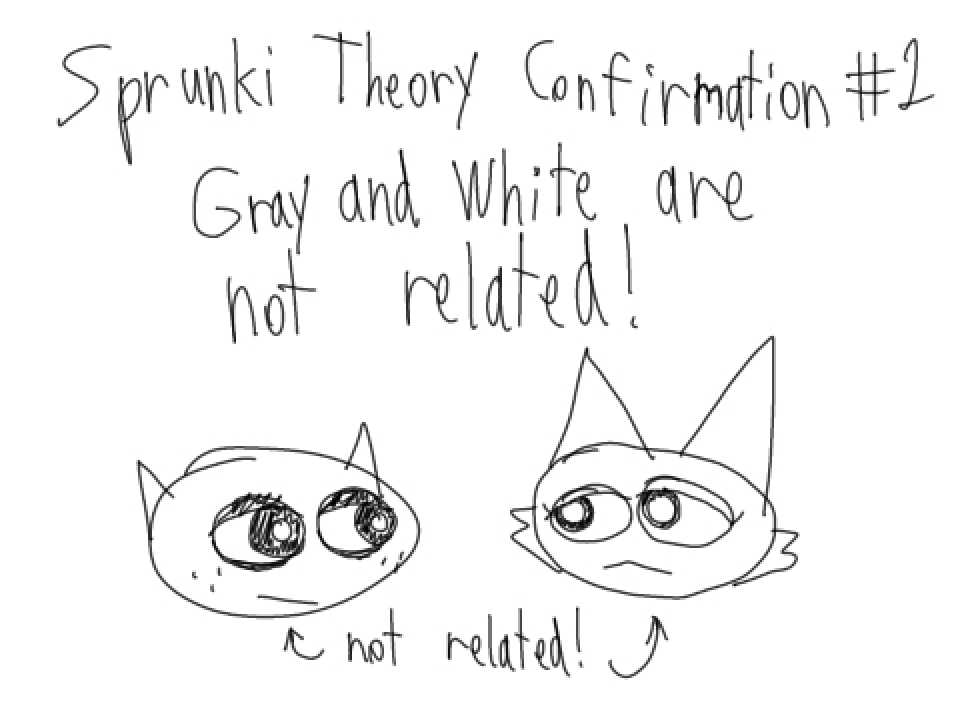 Sprunki Theory Confirmation #2
Gray and White are
not related!
not related!